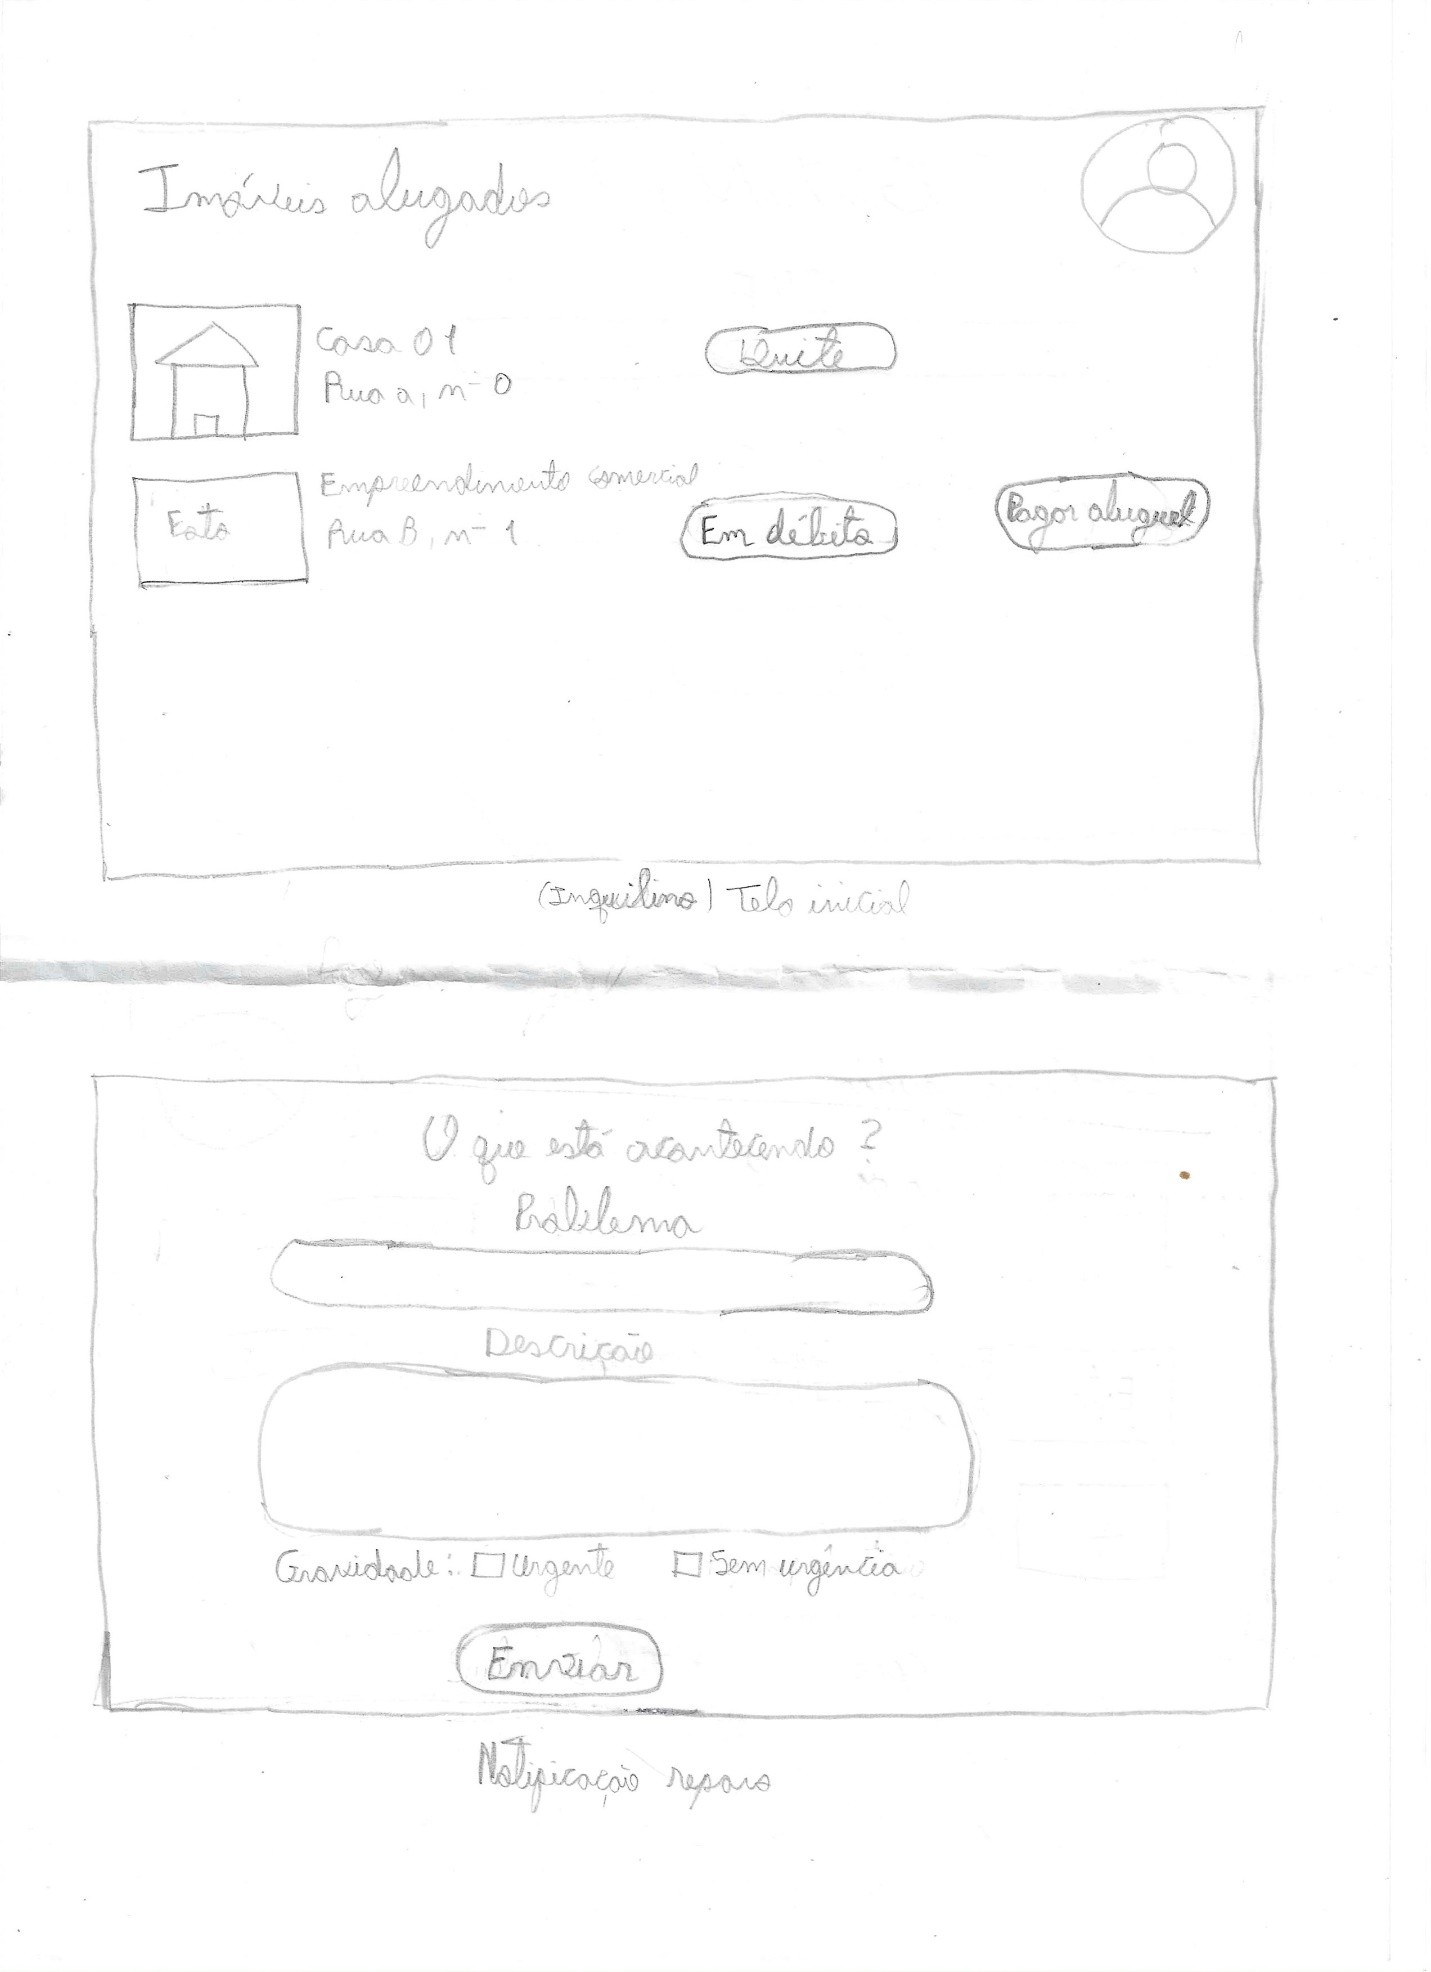 Imóveis alugados
Casa 01
Rua a, nº 0
Quite
Empreendimento comercial
Foto
Rua B, nº 1
Em débito
Pagar aluguel
(Inquilino) Tela inicial
O que está acontecendo?
Problema
Descrição
Gravidade: Urgente Sem urgência
Enviar
Notificação reparo